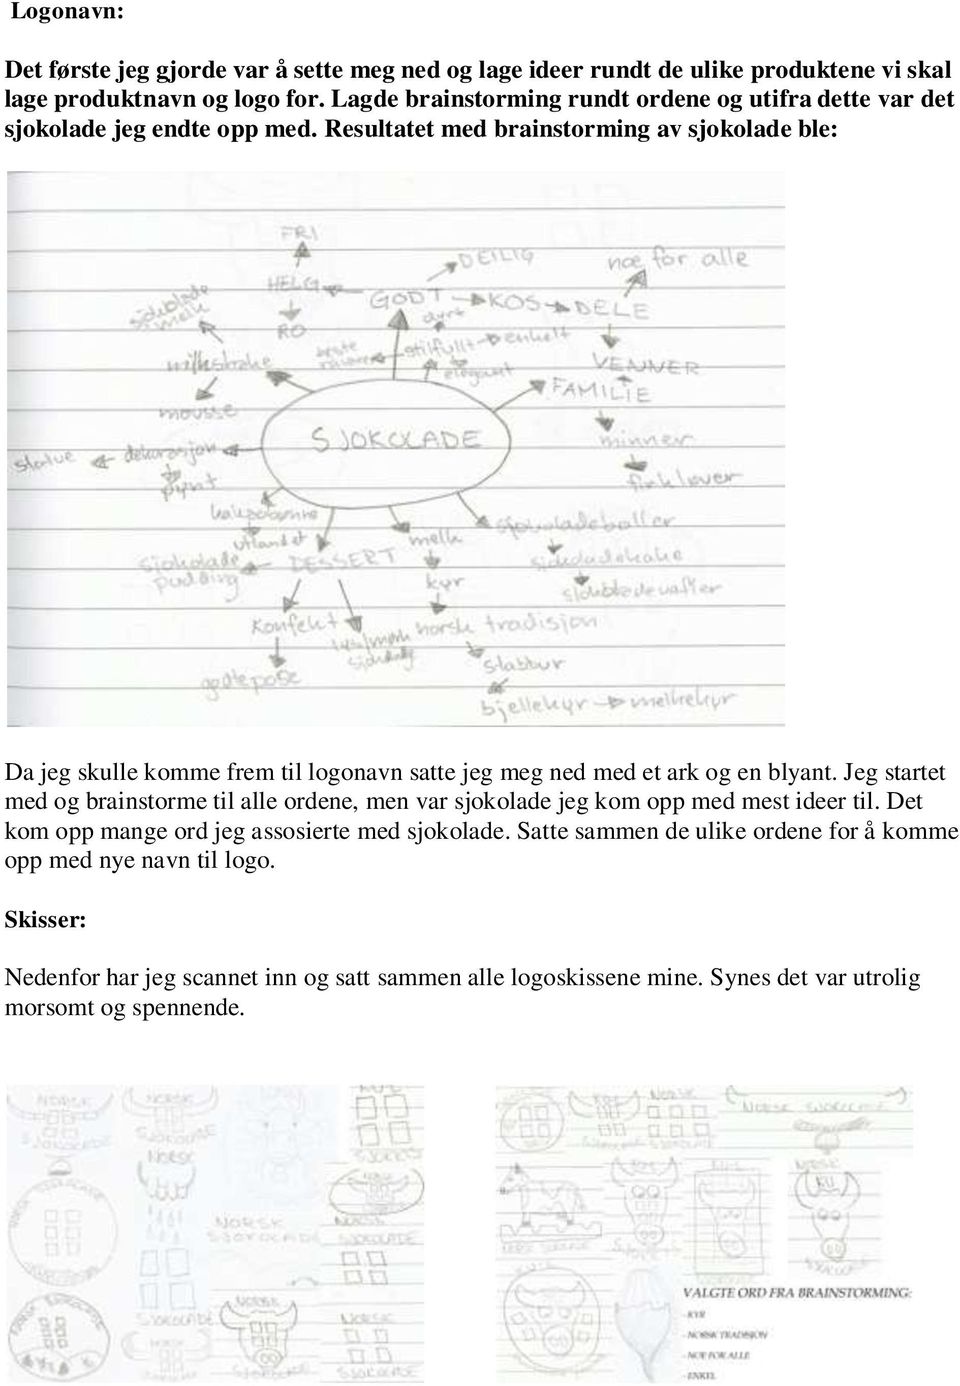 Logonavn:
Det første jeg gjorde var å sette meg ned og lage ideer rundt de ulike produktene vi skal
lage produktnavn og logo for. Lagde brainstorming rundt ordene og utifra dette var det
sjokolade jeg endte opp med. Resultatet med brainstorming av sjokolade ble:
FRI
DEILIG
noe for alle
HELG
GODT
KOS
DELE
sjokolade
melk
RO
dyrt
beste
stilfullt
enkelt
milkshake
elegant
VENNER
FAMILIE
mousse
SJOKOLADE
minner
statue
dekorasjon
pynt
firkløver
utlandet
melk
sjokoladeboller
sjokolade
pudding
DESSERT
sjokoladekake
kyr
Konfekt
norsk tradisjon
godtepose
stabbur
bjellekyr
melkekyr
Da jeg skulle komme frem til logonavn satte jeg meg ned med et ark og en blyant. Jeg startet
med og brainstorme til alle ordene, men var sjokolade jeg kom opp med mest ideer til. Det
kom opp mange ord jeg assosierte med sjokolade. Satte sammen de ulike ordene for å komme
opp med nye navn til logo.
Skisser:
Nedenfor har jeg scannet inn og satt sammen alle logoskissene mine. Synes det var utrolig
morsomt og spennende.
NORSK
NORSK
SJOKOLADE
NORSK
NORSK
SJOKOLADE
SJOKOLADE
NORSK
SJOKOLADE
NORSK
NORSK SJOKOLADE
NORSK
VALGTE ORD FRA BRAINSTORMING:
- KYR
- NORSK TRADISJON
- NOE FOR ALLE
- ENKEL